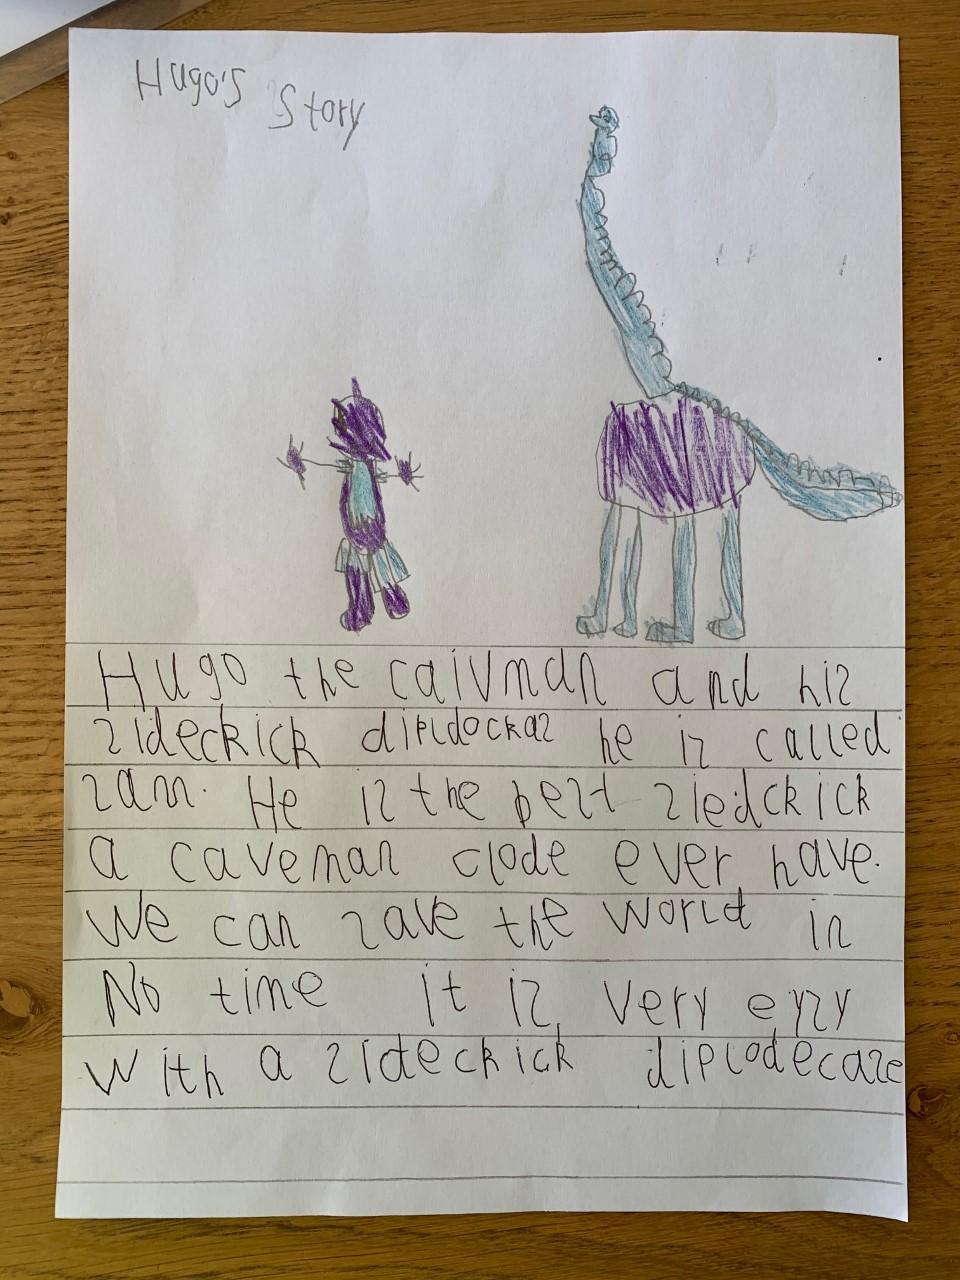 Hugo's Story
Hugo the caivman and hiz
zideckick dipldockaz he iz called
zam. He iz the bezt ziedckick
a caveman clode ever have.
We can zave the world in
No time it iz very eyzy
with a zideckick diplodecaze